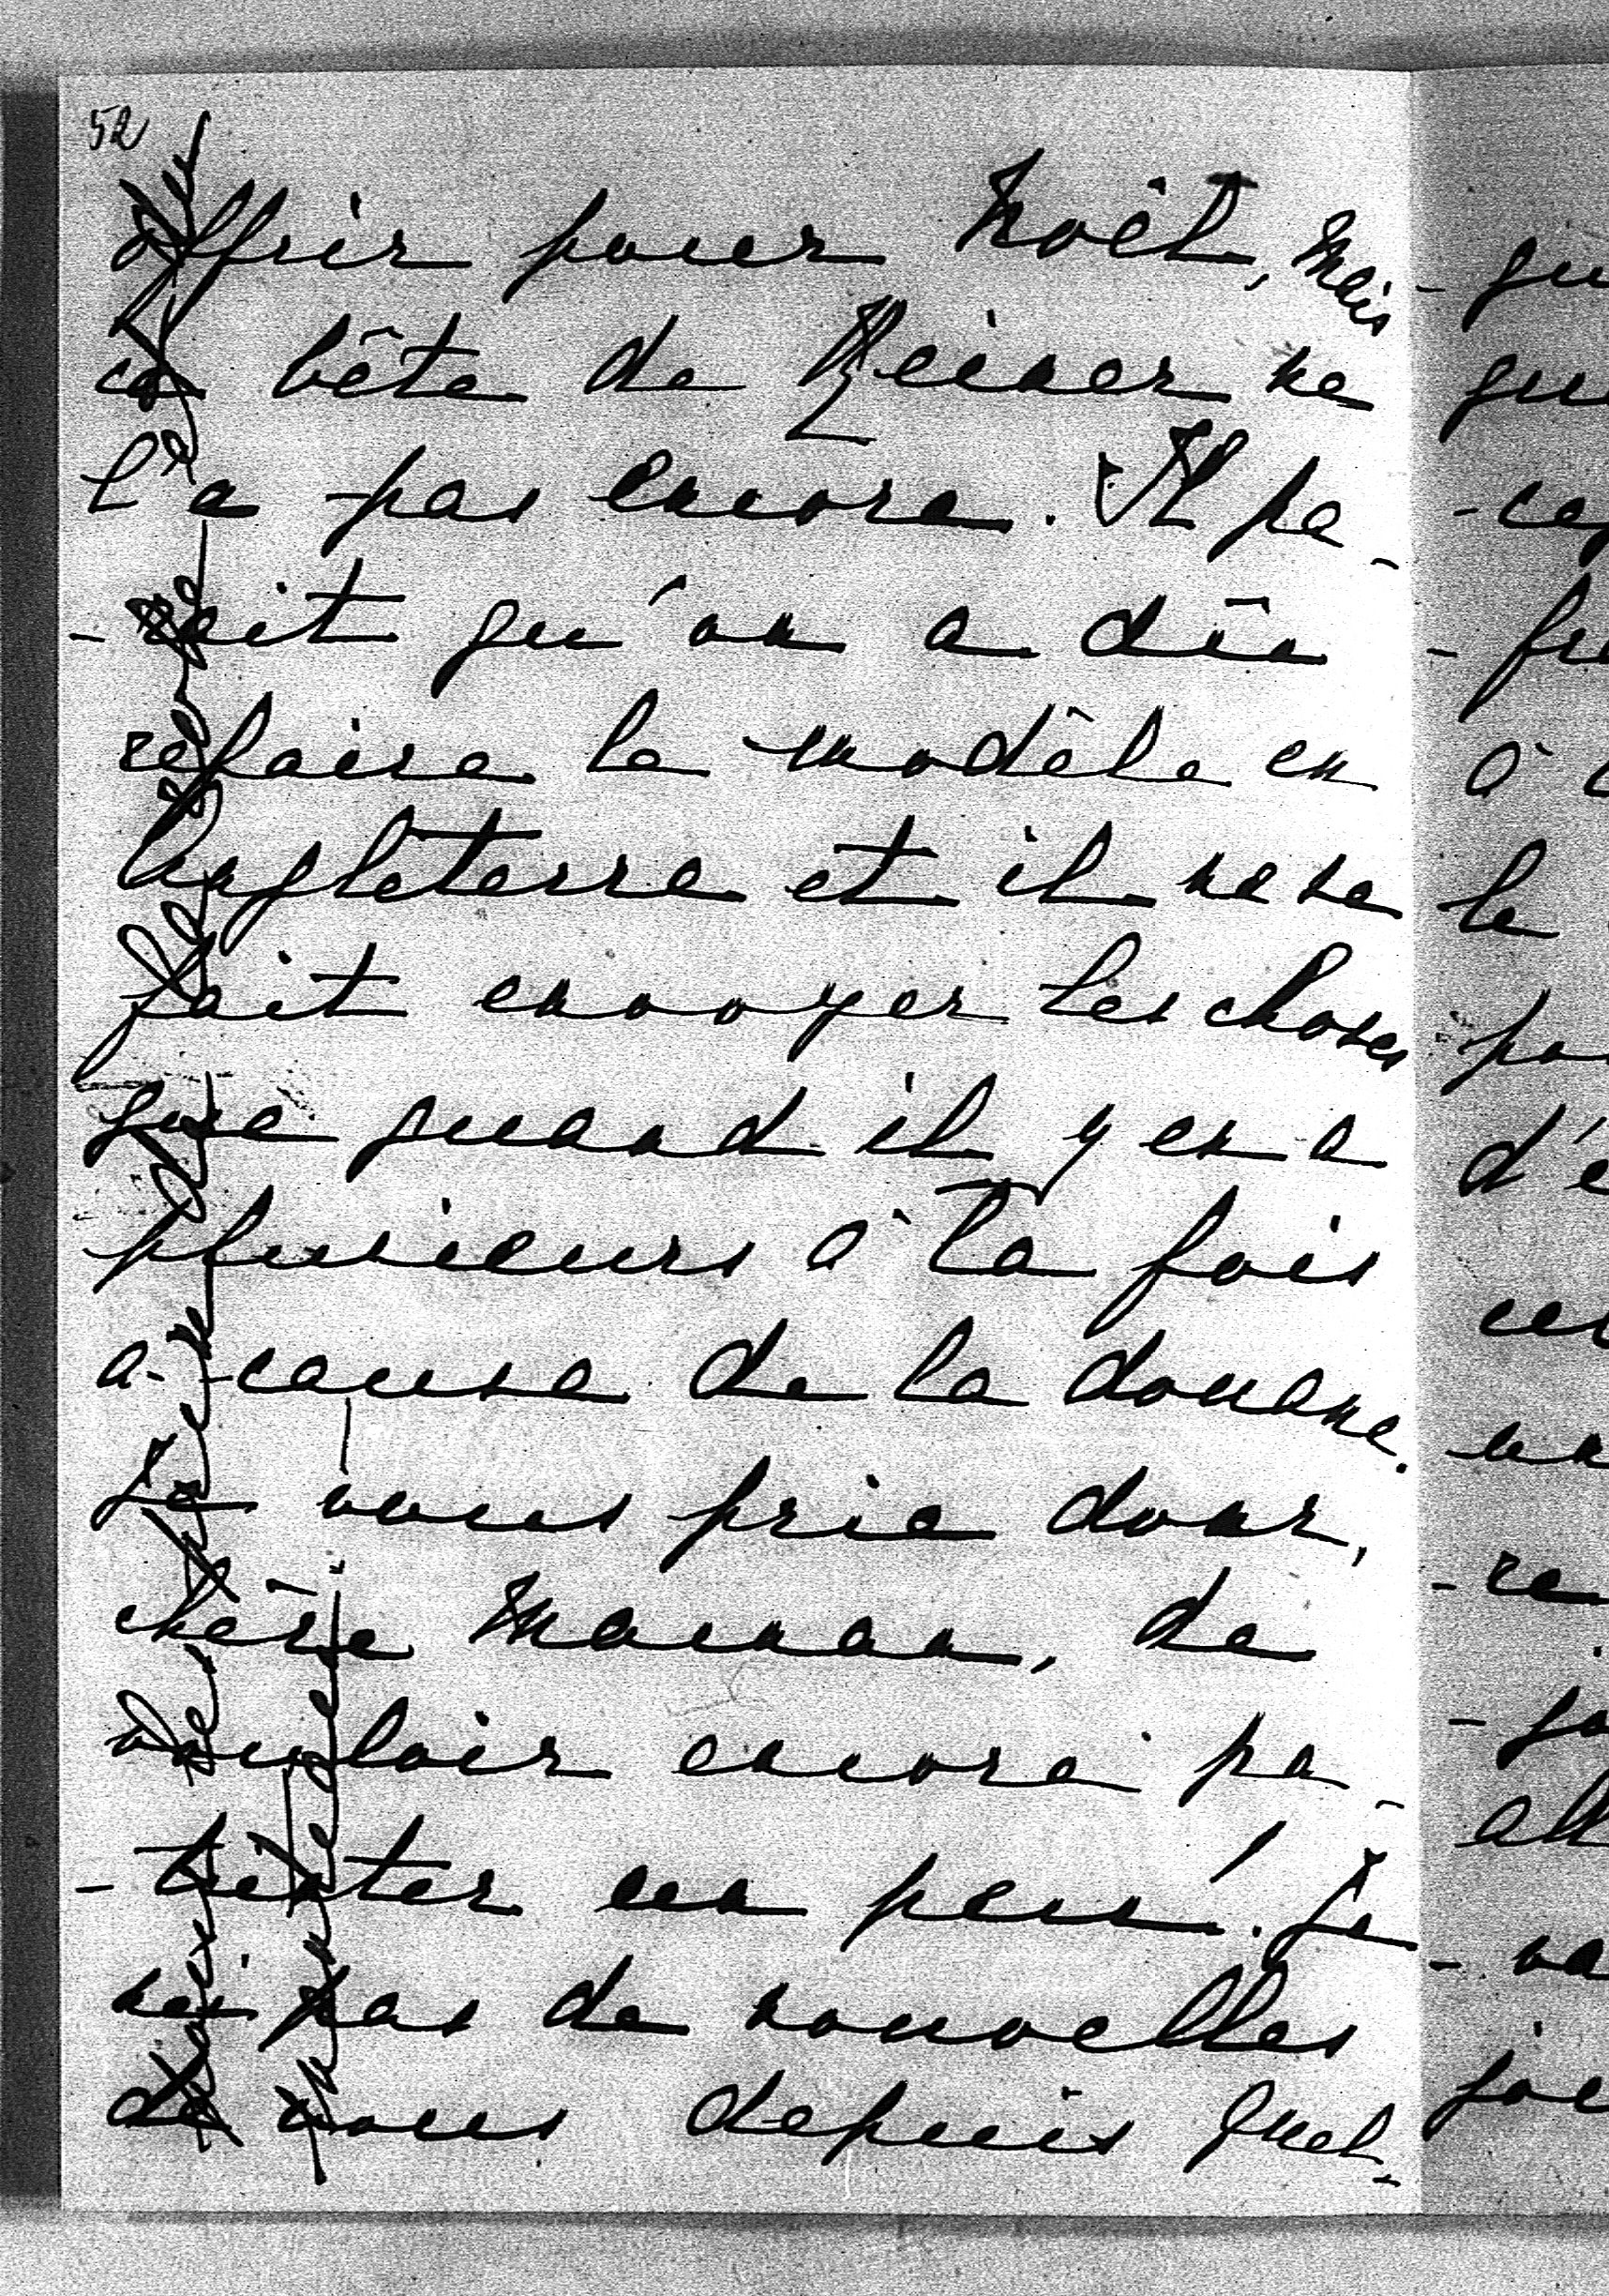 52
offrir pour Noël, mais
ce bête de Keiser ne
l'a pas encore. Il pa-
-rait qu'on a dû
refaire le modèle en
Angleterre et il ne se
fait envoyer les choses
que quand il y en a
plusieurs à la fois
a-cause de la douane.
Je vous prie donc,
chère Maman, de
vouloir encore pa-
-tienter un peu! Je
n'ai pas de nouvelles
de vous depuis quel-